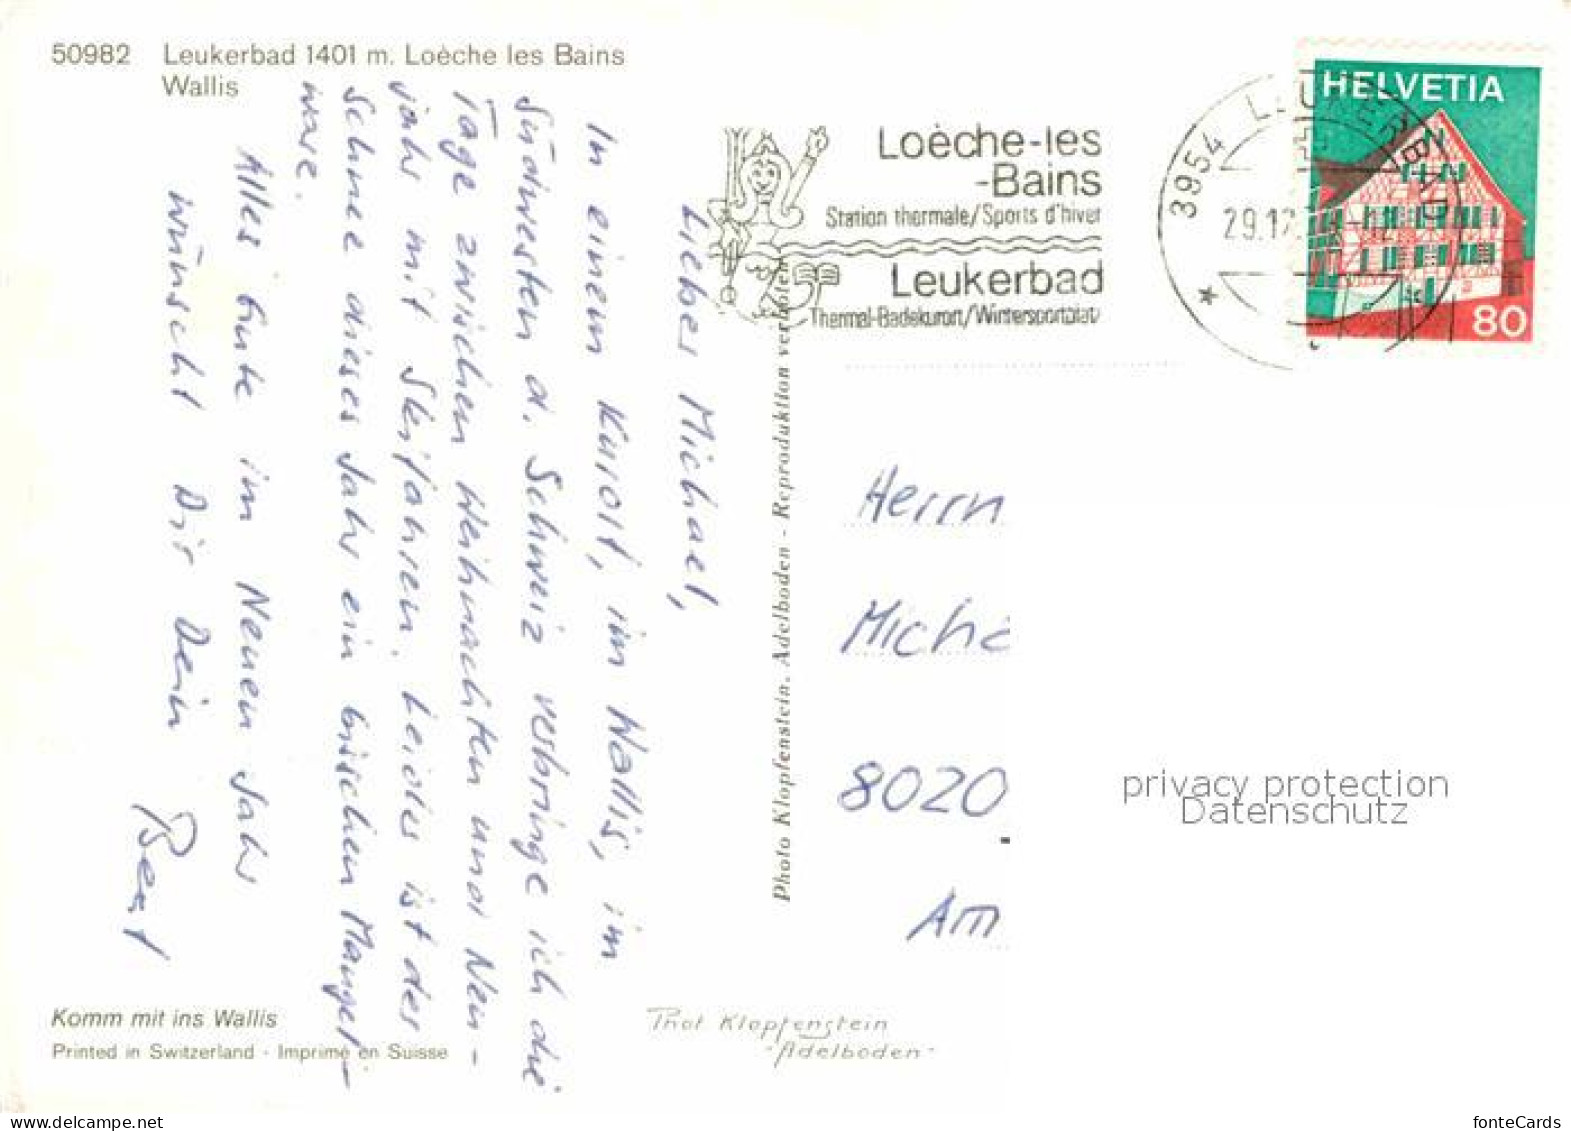 50982 Leukerbad 1401 m. Loèche les Bains
Wallis
Liebes Michael,
In einem Kurort, im Wallis, im
Südwesten d. Schweiz verbringe ich die
Tage zwischen Weihnachten und Neu-
jahr mit Skifahren. Leider ist der
Schnee dieses Jahr ein bisschen Mangel-
ware.
Alles Gute im Neuen Jahr
wünscht Dir Dein
Beat
Komm mit ins Wallis
Printed in Switzerland - Imprimé en Suisse
Phot Klopfenstein
-Adelboden-
Photo Klopfenstein, Adelboden - Reproduktion verboten
Loèche-les
-Bains
Station thermale/Sports d'hiver
Leukerbad
Thermal-Badekurort/Wintersportplatz
3954 LEUKERBAD
29.12.
HELVETIA
80
Herrn
Micha
8020
Am
privacy protection
Datenschutz
fonteCards